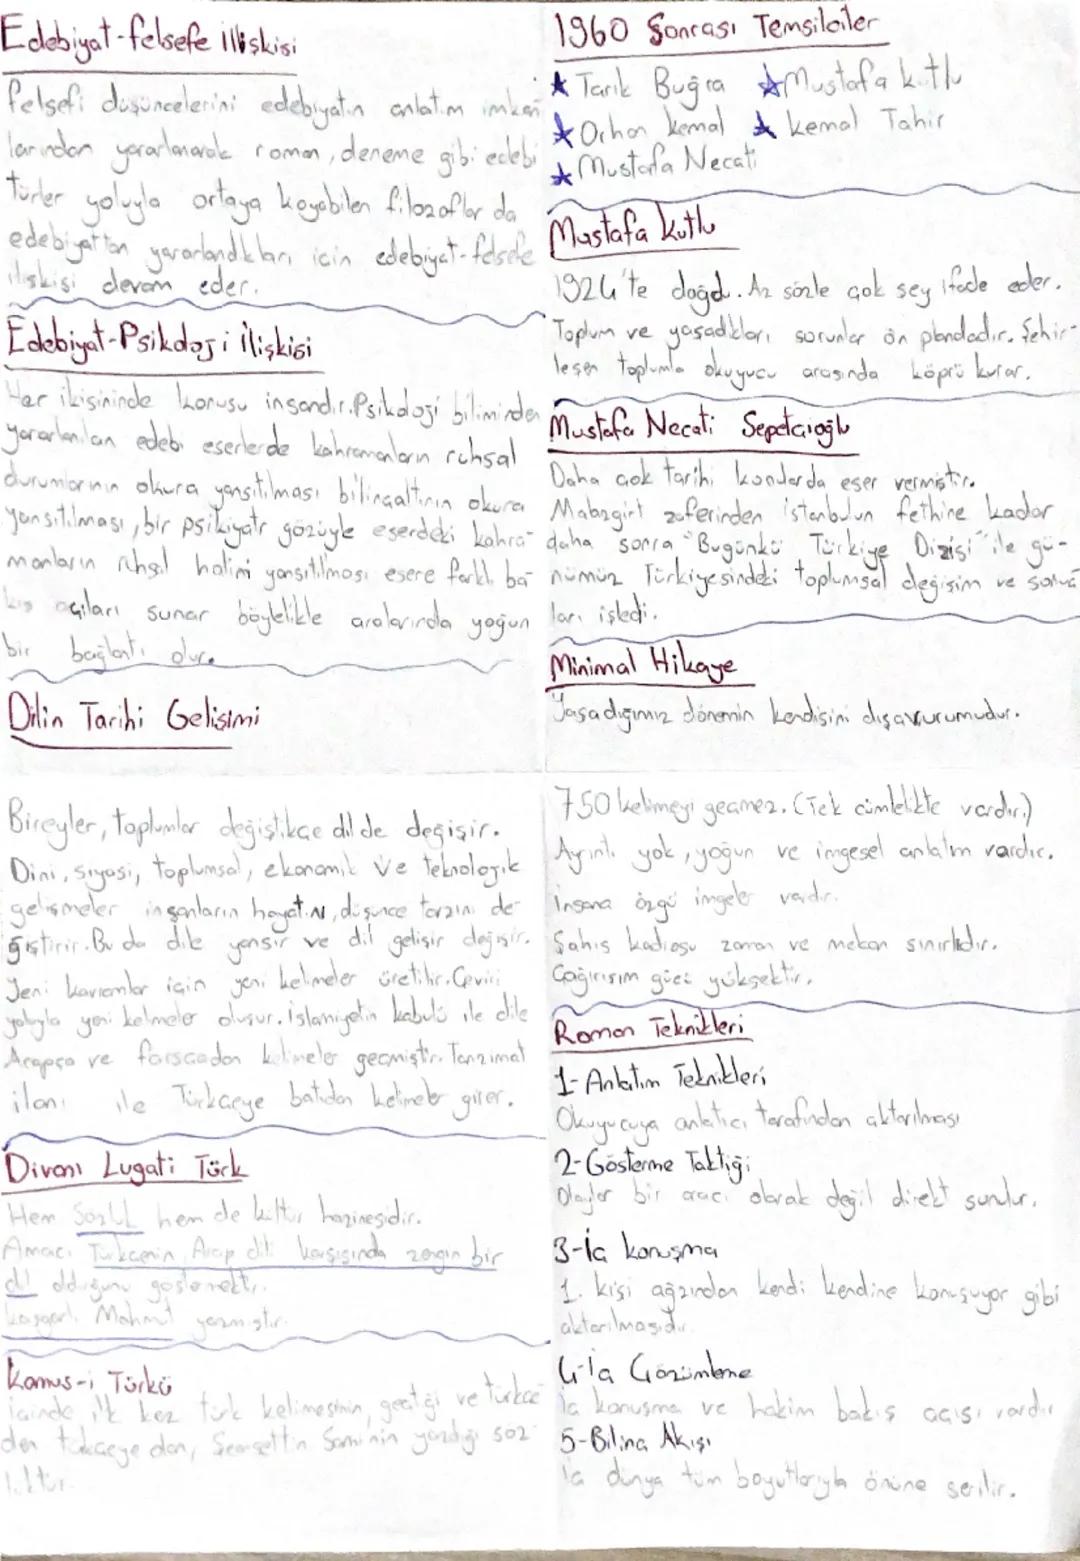 Edebiyat-felsefe ilişkisi
felsefi düşüncelerini edebiyatın anlatım imkan
larından yararlanarak roman, deneme gibi edebi
türler yoluyla ortaya koyabilen filozoflar da
edebiyattan yararlandıkları için edebiyat-felsefe
ilişkisi devam eder.
Edebiyat-Psikoloji ilişkisi
Her ikisininde konusu insandır. Psikoloji biliminden
yararlanılan edebi eserlerde kahramanların ruhsal
durumlarının okura yansıtılması bilinçaltının okura
yansıtılması, bir psikiyatr gözüyle eserdeki kahra-
manların ruhsal halini yansıtılması esere farklı ba-
kış açıları sunar böylelikle aralarında yoğun
bir bağlantı olur.
Dilin Tarihi Gelişimi
Bireyler, toplumlar değiştikçe dil de değişir.
Dini, siyasi, toplumsal, ekonomik ve teknolojik
gelişmeler insanların hayatını, düşünce tarzını de-
ğiştirir. Bu da dile yansır ve dil gelişir değişir.
Yeni kavramlar için yeni kelimeler üretilir. Çeviri
yoluyla yeni kelimeler oluşur. İslamiyetin kabulü ile dile
Arapça ve farsçadan kelimeler geçmiştir. Tanzimat
ilanı ile Türkçeye batıdan kelimeler girer.
Divanı Lugati Türk
Hem Sözlük hem de kültür hazinesidir.
Amacı Türkçenin Arap dili karşısında zengin bir
dil olduğunu göstermektir.
Kaşgarlı Mahmut yazmıştır.
Kamus-i Türkü
içinde ilk kez türk kelimesinin geçtiği ve türkçe
den türkçeye olan, Şemsettin Sami'nin yazdığı söz
lüktür.
1960 Sonrası Temsilciler
★ Tarık Buğra ★ Mustafa kutlu
★ Orhan kemal ★ kemal Tahir
★ Mustafa Necati
Mustafa Kutlu
1924'te doğdu. Az sözle çok şey ifade eder.
Toplum ve yaşadıkları sorunlar ön plandadır. Şehir-
leşen toplumla okuyucu arasında köprü kurar.
Mustafa Necati Sepetçioğlu
Daha çok tarihi konularda eser vermiştir.
Malazgirt zaferinden istanbulun fethine kadar
daha sonra "Bugünkü Türkiye Dizisi" ile gü-
nümüz Türkiyesindeki toplumsal değişim ve
ları işledi.
Minimal Hikaye
Yaşadığımız dönemin kendisini dışavurumudur.
750 kelimeyi geçmez. (Tek cümlelikte vardır.)
Ayrıntı yok, yoğun ve imgesel anlatım vardır.
insana özgü imgeler vardır.
Şahıs kadrosu zaman ve mekan sınırlıdır.
Çağırışım gücü yüksektir.
Roman Teknikleri
1-Anlatım Teknikleri
Okuyucuya anlatıcı tarafından aktarılması
2-Gösterme Taktiği
Olaylar bir aracı olarak değil direkt sunulur.
3-İç konuşma
1. kişi ağzından kendi kendine konuşuyor gibi
aktarılmasıdır.
4-İç Çözümleme
İç konuşma ve hakim bakış açısı vardır
5-Bilinç Akışı
İç dünya tüm boyutlarıyla önüne serilir.